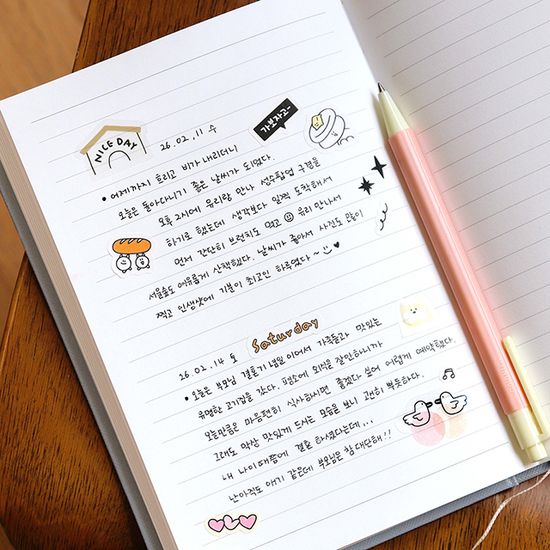 NICE DAY
26.02.11 수
가보자고~
• 어제까지 흐리고 비가 내리더니
오늘은 돌아다니기 좋은 날씨가 되었다.
오후 2시에 유리랑 만나 성수팝업 구경을
하기로 했는데 생각보다 일찍 도착해서
먼저 간단히 브런치도 먹고 유리 만나서
서울숲도 여유롭게 산책했다. 날씨가 좋아서 사진도 많이
찍고 인생샷에 기분이 최고인 하루였다~ ♥
26.02.14 토 Saturday
• 오늘은 부모님 결혼기념일이어서 가족들과 맛있는
유명한 고기집을 갔다. 평소에 외식을 잘안하니까
오늘만큼은 마음편히 식사하시면 좋겠다 싶어 어렵게 예약했다.
그래도 막상 맛있게 드시는 모습을 보니 괜히 뿌듯하다.
내 나이때쯤에 결혼 하셨었다는데...
난아직도 애기 같은데 부모님은 참 대단해!!